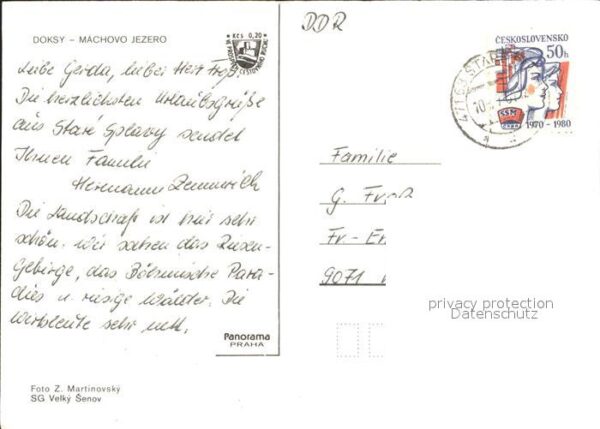 DOKSY – MÁCHOVO JEZERO
Kčs 0,20
Liebe Gerda, lieber Herr
Die herzlichsten Urlaubsgrüße
aus Staré Splavy sendet
Ihnen Familie
Hermann
Die Landschaft ist hier sehr
schön. Wir sahen das
Gebirge, das Böhmische Para-
dies u. riesge Wälder. Die
Wirtsleute sehr nett.
Panorama
PRAHA
Foto Z. Martinovský
SG Velký Šenov
DDR
ČESKOSLOVENSKO
50h
SSM
1970 – 1980
Familie
G.
Fr.-
9071
privacy protection
Datenschutz